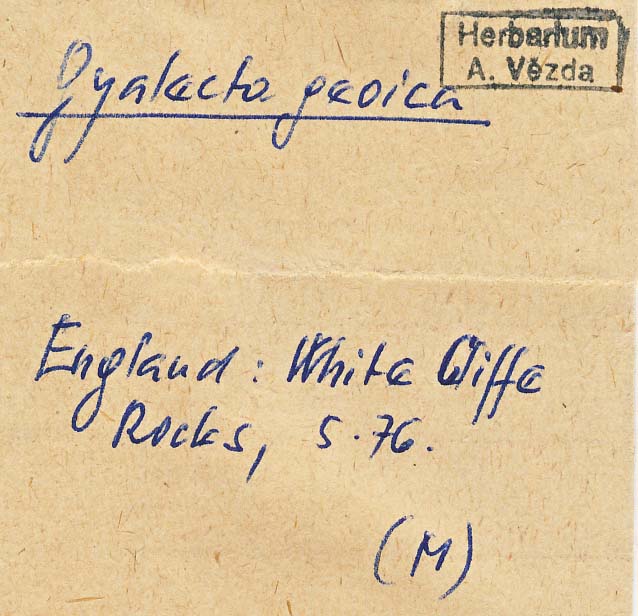 Herbarium
A. Vězda
Gyalecta geoica
England: White Cliffe
Rocks, 5.76.
(M)